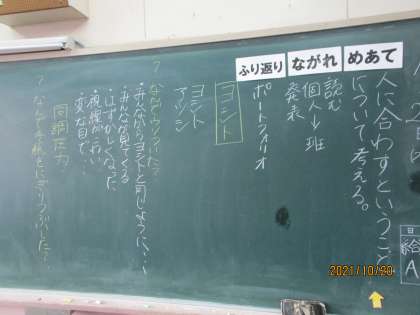 めあて
ながれ
ふり返り
人に合わすということ
について考える。
読む
個人→班
発表
ポートフォリオ
ヨシト
ヨシト
アツシ
？なぜウソついた？
・みんなからヨシトと同じように、・・・
・みんなが見てくる
・はずかしくなった
・視線が痛い
・変な目で・・
同調圧力
？なんで手紙をにぎりつぶした？
日
A
2021/10/20